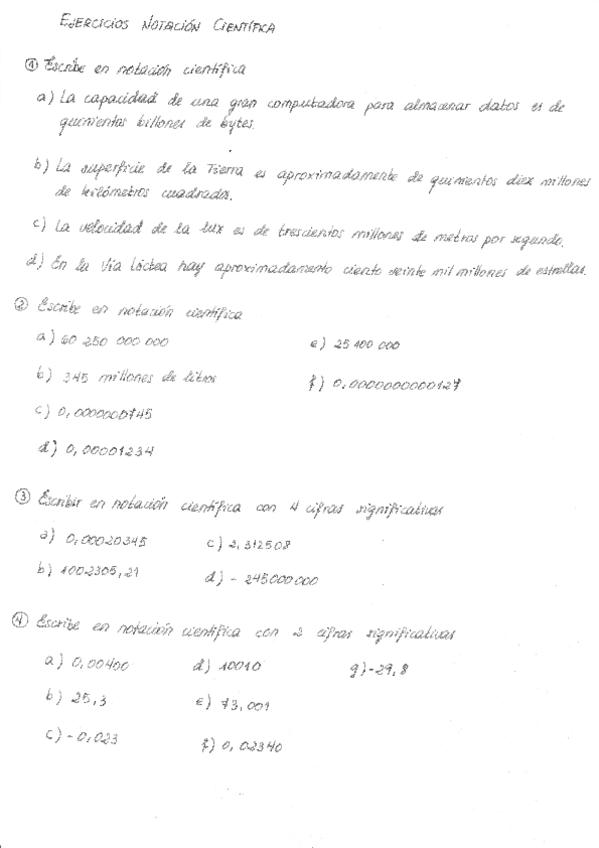 EJERCICIOS NOTACIÓN CIENTÍFICA
① Escribe en notación científica
a) La capacidad de una gran computadora para almacenar datos es de
quinientos billones de bytes.
b) La superficie de la Tierra es aproximadamente de quinientos diez millones
de kilómetros cuadrados.
c) La velocidad de la luz es de trescientos millones de metros por segundo.
d) En la Vía Láctea hay aproximadamente ciento veinte mil millones de estrellas.
② Escribe en notación científica
a) 60 250 000 000
e) 25 100 000
b) 345 millones de litros
f) 0,0000000000127
c) 0,0000000745
d) 0,00001234
③ Escribir en notación científica con 4 cifras significativas
a) 0,00020345
c) 2,312508
b) 1002305,21
d) - 245000000
④ Escribe en notación científica con 2 cifras significativas
a) 0,00400
d) 10010
g) -29,8
b) 25,3
e) 73,001
c) -0,023
f) 0,02340